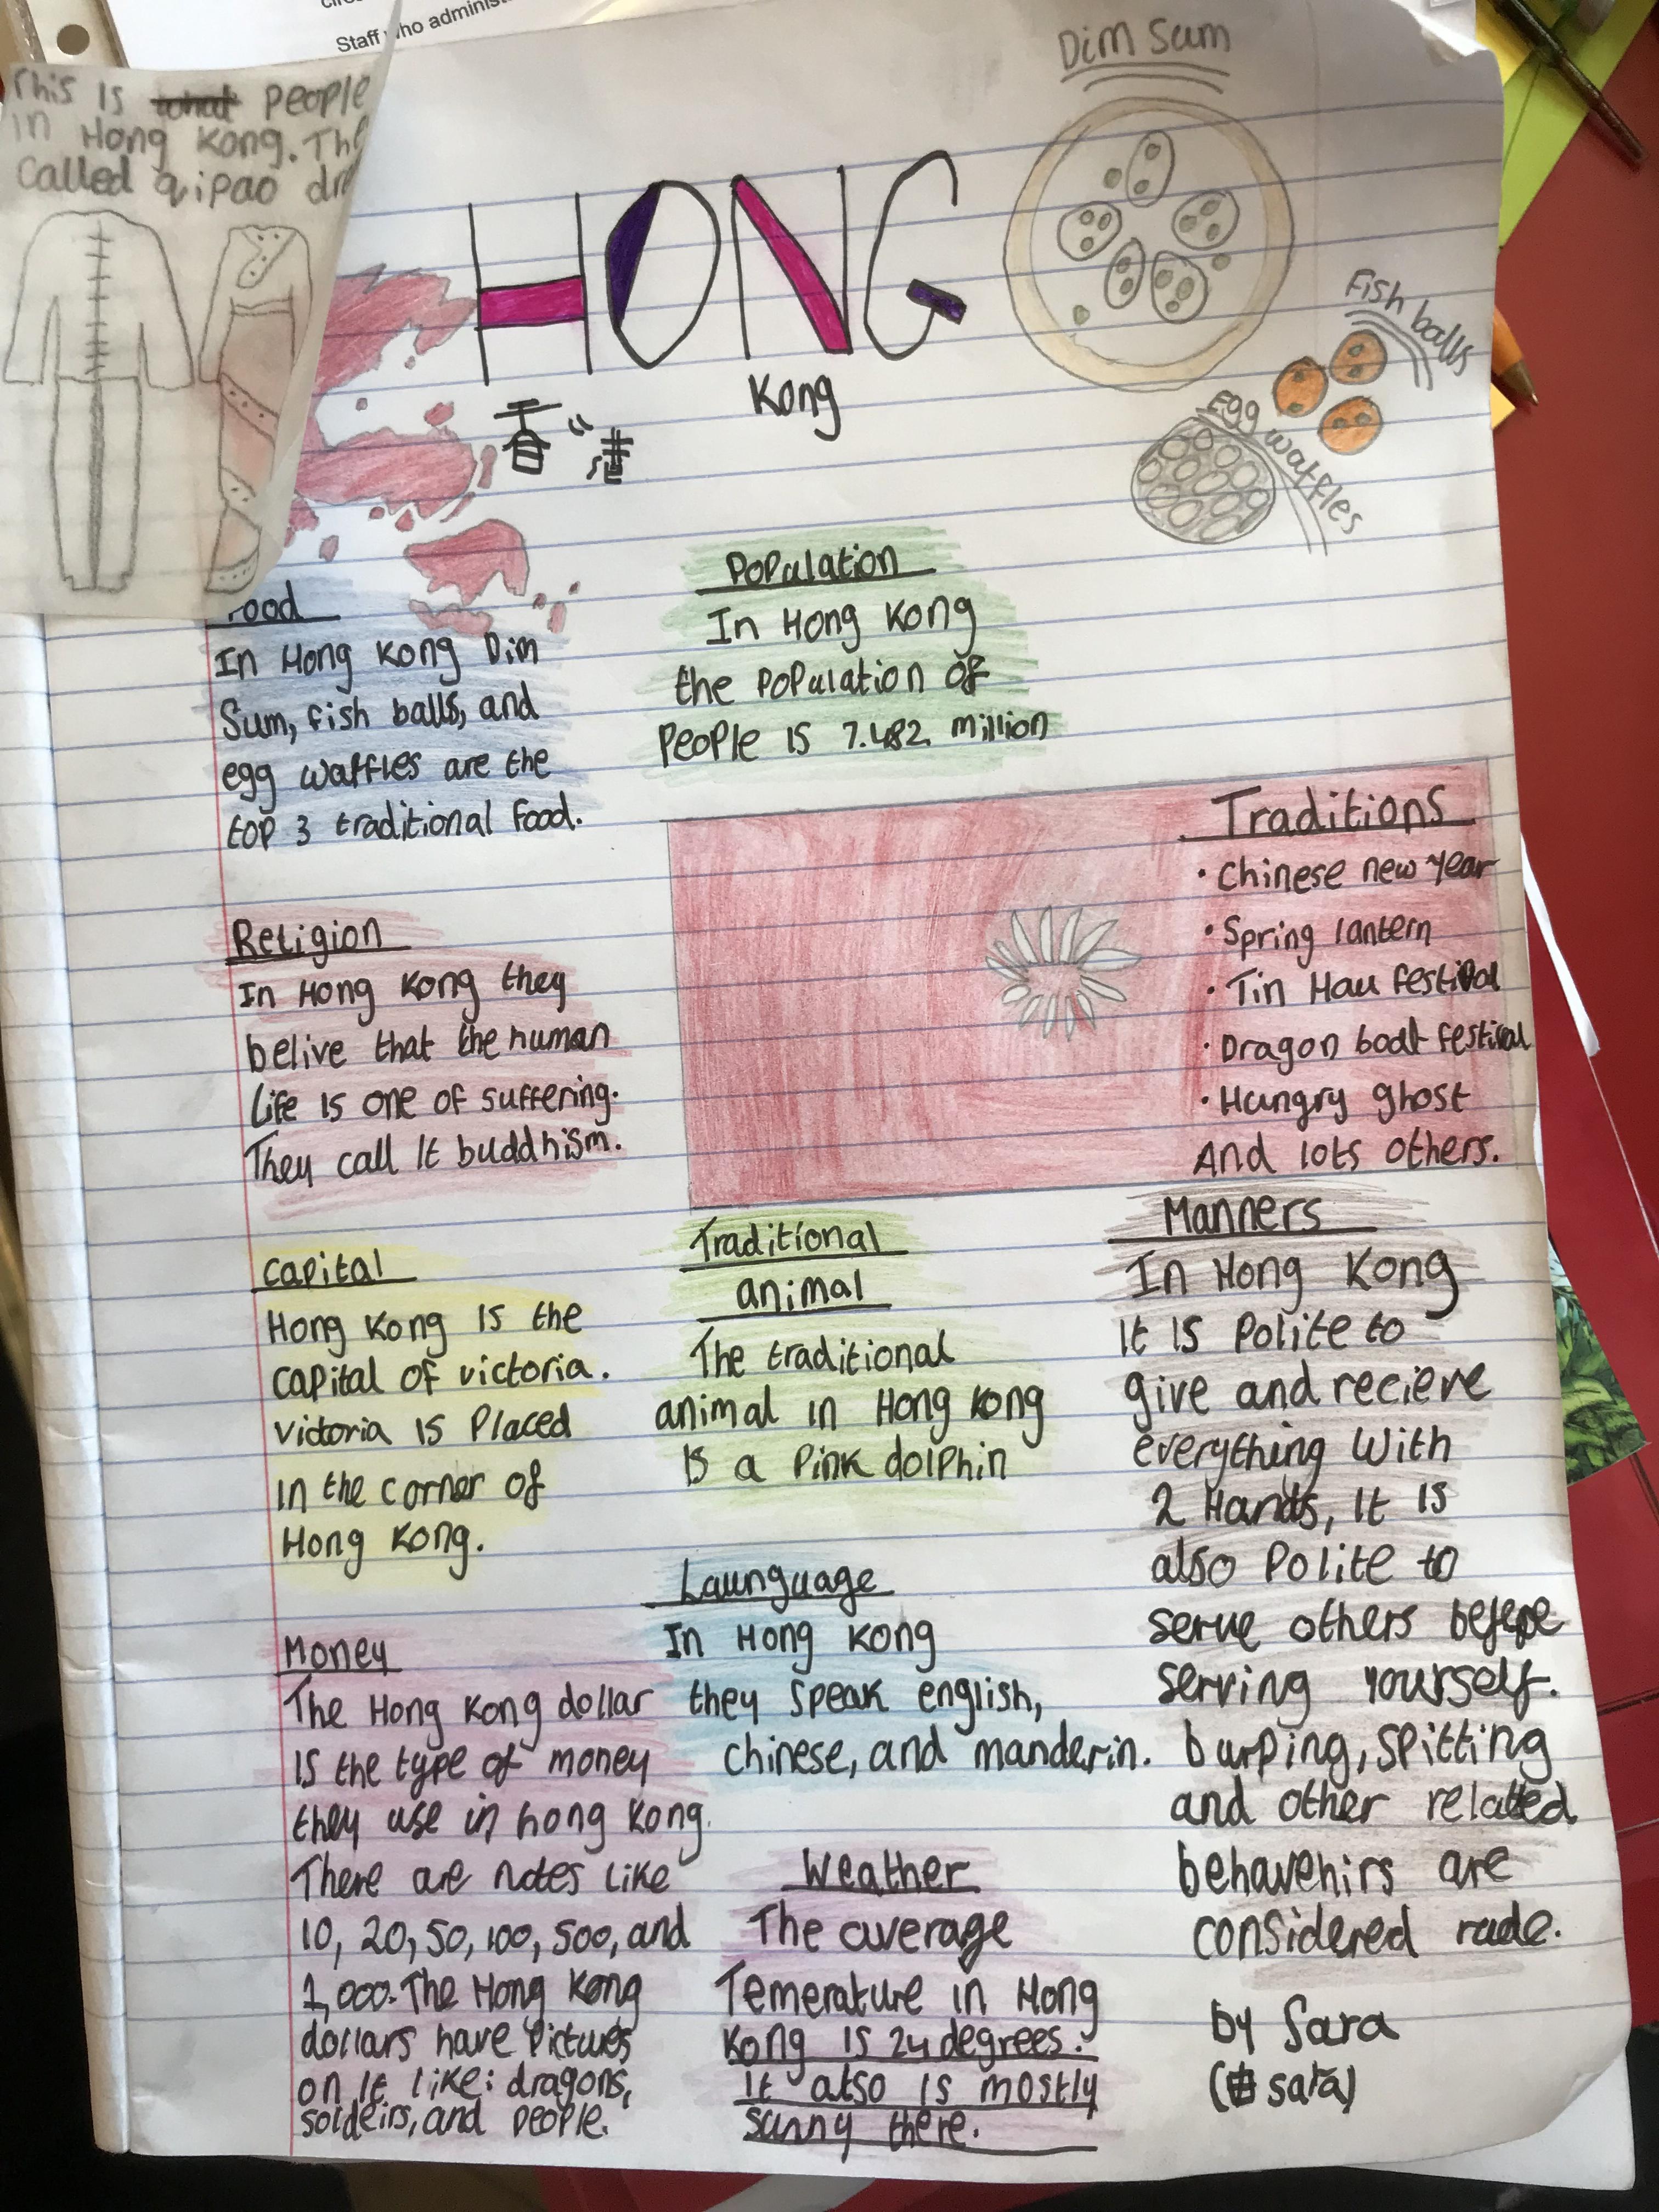 Staff who administ
This is what people
in Hong Kong. The
called qipao dre
HONG
Kong
香港
Dim Sum
Fish balls
Egg waffles
Food
In Hong Kong Dim
Sum, fish balls, and
egg waffles are the
top 3 traditional food.
Population
In Hong Kong
the population of
people is 7.482 million
Religion
In Hong Kong they
belive that the human
life is one of suffering.
They call it buddhism.
Traditions
• Chinese new year
• Spring lantern
• Tin Hau festival
• Dragon boat festival
• Hungry ghost
And lots others.
Capital
Hong Kong is the
capital of victoria.
victoria is placed
in the corner of
Hong Kong.
Traditional
animal
The traditional
animal in Hong Kong
is a pink dolphin
Manners
In Hong Kong
it is polite to
give and recieve
everything with
2 Hands, it is
also polite to
serve others before
serving yourself.
burping, spitting
and other related
behavenirs are
considered rude.
Money
The Hong Kong dollar
is the type of money
they use in hong kong.
There are notes like
10, 20, 50, 100, 500, and
1,000. The Hong Kong
dollars have pictures
on it like: dragons,
soldeirs, and people.
Launguage
In Hong Kong
they speak english,
chinese, and manderin.
Weather
The average
Temerature in Hong
Kong is 24 degrees.
it also is mostly
sunny there.
by Sara
sara)